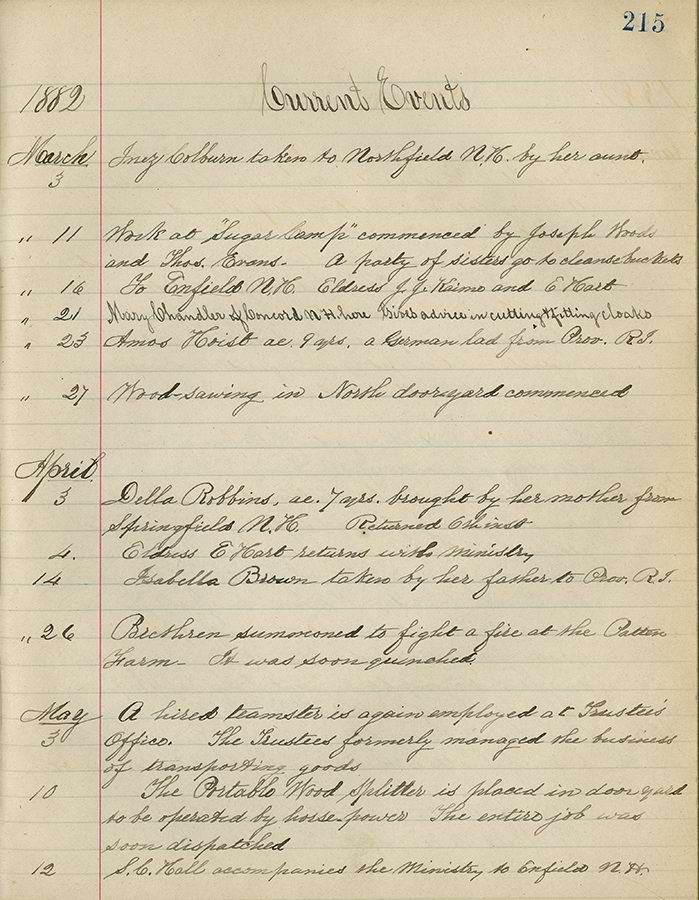 215
1882 Current Events
March 3 Inez Colburn taken to Northfield N.H. by her aunt.
" 11 Work at "Sugar Camp" commenced by Joseph Woods
and Thos. Evans. A party of sisters go to cleanse buckets
" 16 To Enfield N.H. Eldress J. J. Kaime and E Hart
" 21 Mary Chandler of Concord N.H. here Gives advice in cutting & fitting cloaks
" 23 Amos Hoist ae. 9 yrs, a German lad from Prov. R.I.
" 27 Wood-sawing in North door-yard commenced
April 3 Della Robbins, ae. 7 yrs. brought by her mother from
Springfield N.H. Returned 6th inst
4. Eldress E Hart returns with Ministry
14 Isabella Brown taken by her father to Prov. R.I.
" 26 Brethren summoned to fight a fire at the Patten
Farm - It was soon quenched.
May 3 A hired teamster is again employed at Trustee's
Office. The Trustees formerly managed the business
of transporting goods
10 The Portable Wood Splitter is placed in door yard
to be operated by horse-power The entire job was
soon dispatched
12 S.C. Hall accompanies the Ministry to Enfield N.H.